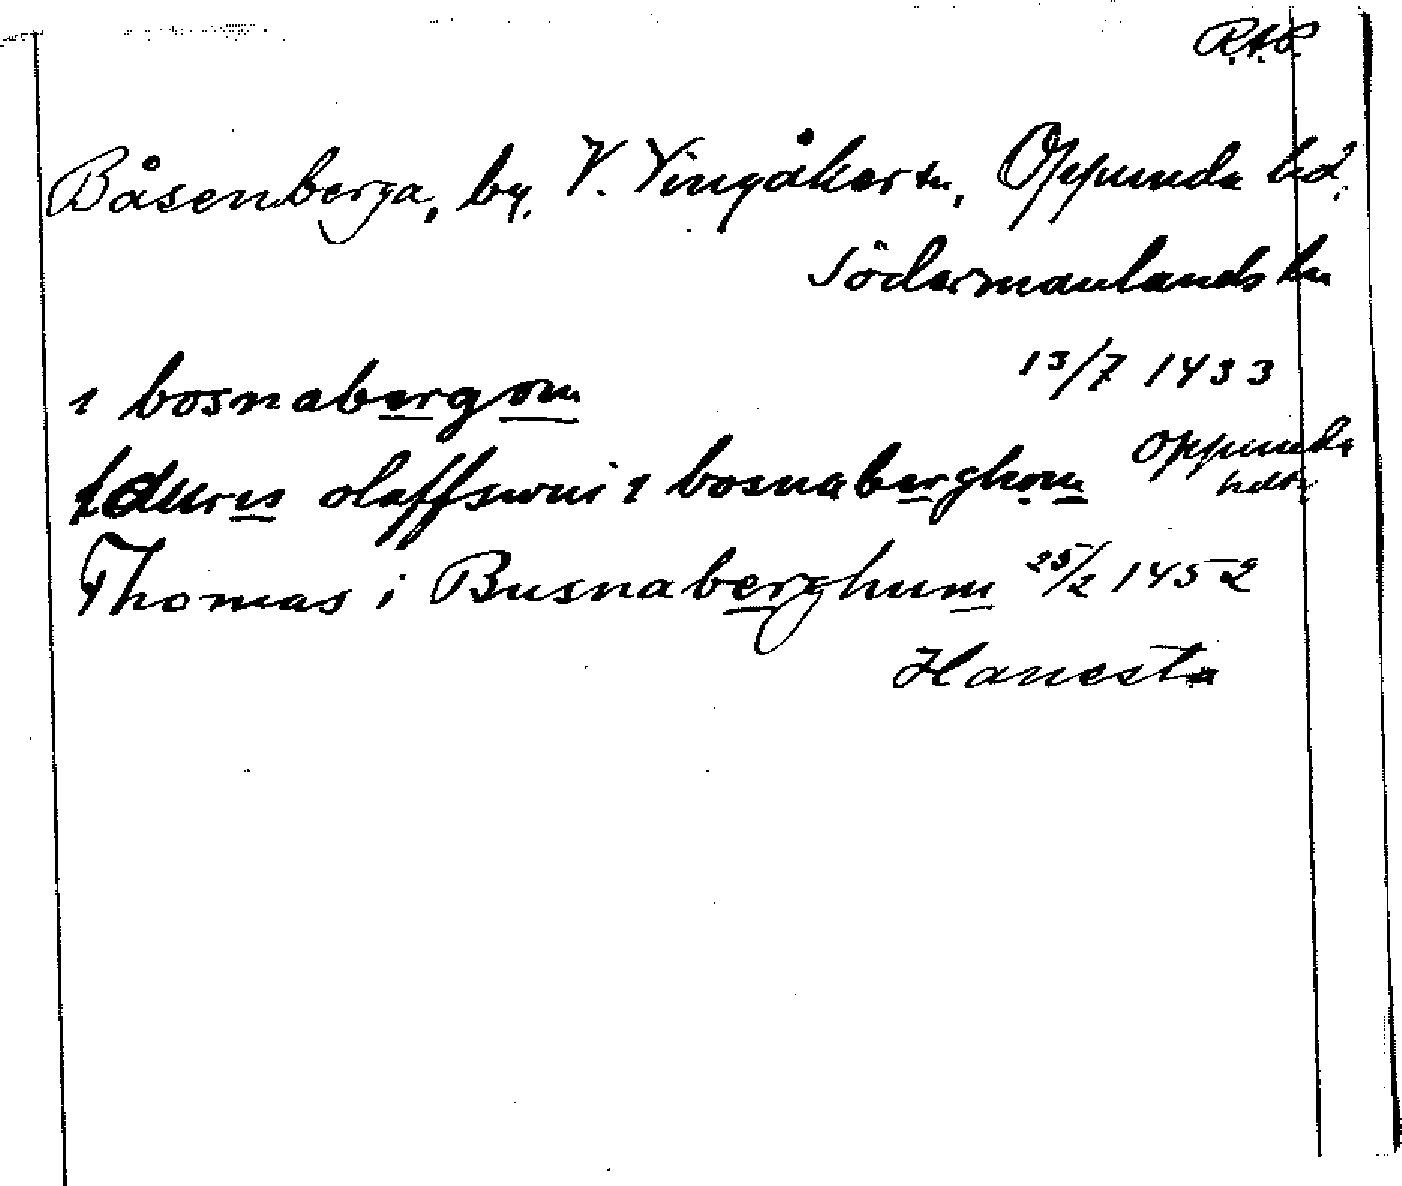 R.A.P.
Båsenberga, by, V. Vingåker sn, Oppunda hd,
Södermanlands ln
i bosnabergom 13/7 1433
lauris olaffswni i bosnaberghom Oppunda
Thomas i Busnaberghum 25/2 1452
Hanesta